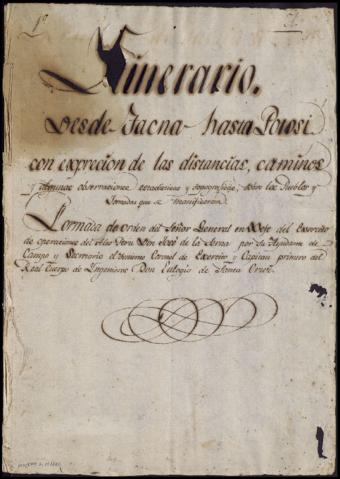 1º
Itinerario.
Desde Tacna hasta Potosi
con exprecion de las distancias, caminos
y algunas observaciones estadisticas y topograficas, sobre los Pueblos y
Jornadas que se manifiestan
Formada de orden del Señor General en Xefe del Exercito
de operaciones del Alto Peru Don José de la Serna por su Ayudante de
Campo y Secretario el Teniente Coronel de Exercito y Capitan primero del
Real Cuerpo de Ingenieros Don Eulogio de Santa Cruz.